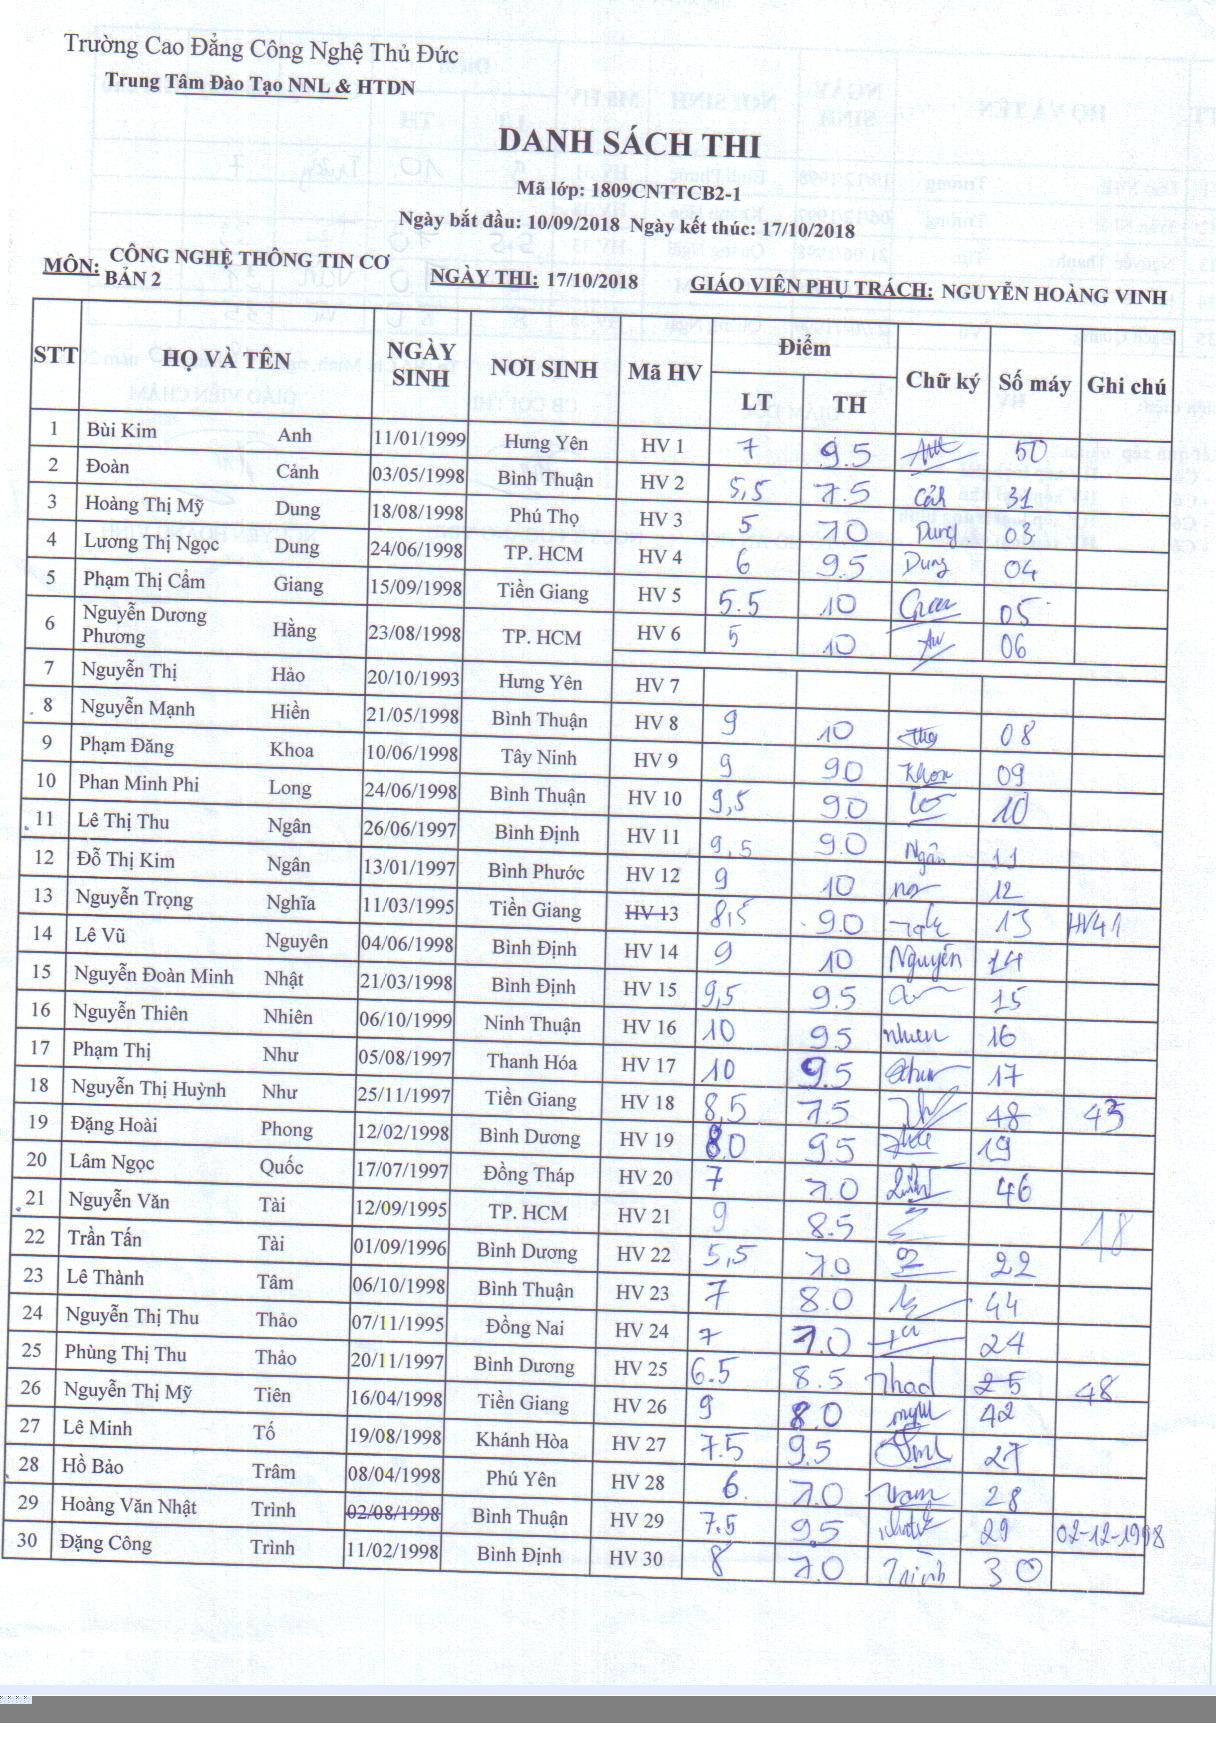 Trường Cao Đẳng Công Nghệ Thủ Đức
Trung Tâm Đào Tạo NNL & HTDN
DANH SÁCH THI
Mã lớp: 1809CNTTCB2-1
Ngày bắt đầu: 10/09/2018 Ngày kết thúc: 17/10/2018
MÔN: CÔNG NGHỆ THÔNG TIN CƠ BẢN 2 NGÀY THI: 17/10/2018 GIÁO VIÊN PHỤ TRÁCH: NGUYỄN HOÀNG VINH
STT HỌ VÀ TÊN NGÀY SINH NƠI SINH Mã HV Điểm Chữ ký Số máy Ghi chú
LT TH
1 Bùi Kim Anh 11/01/1999 Hưng Yên HV 1 7 9.5 50
2 Đoàn Cảnh 03/05/1998 Bình Thuận HV 2 5,5 7.5 Cảnh 31
3 Hoàng Thị Mỹ Dung 18/08/1998 Phú Thọ HV 3 5 7.0 Dung 03
4 Lương Thị Ngọc Dung 24/06/1998 TP. HCM HV 4 6 9.5 Dung 04
5 Phạm Thị Cẩm Giang 15/09/1998 Tiền Giang HV 5 5.5 10 05
6 Nguyễn Dương Phương Hằng 23/08/1998 TP. HCM HV 6 5 10 06
7 Nguyễn Thị Hảo 20/10/1993 Hưng Yên HV 7
8 Nguyễn Mạnh Hiền 21/05/1998 Bình Thuận HV 8 9 10 08
9 Phạm Đăng Khoa 10/06/1998 Tây Ninh HV 9 9 9.0 Khoa 09
10 Phan Minh Phi Long 24/06/1998 Bình Thuận HV 10 9,5 9.0 10
11 Lê Thị Thu Ngân 26/06/1997 Bình Định HV 11 9,5 9.0 Ngân 11
12 Đỗ Thị Kim Ngân 13/01/1997 Bình Phước HV 12 9 10 12
13 Nguyễn Trọng Nghĩa 11/03/1995 Tiền Giang HV 13 8,5 9.0 13 HV41
14 Lê Vũ Nguyên 04/06/1998 Bình Định HV 14 9 10 Nguyên 14
15 Nguyễn Đoàn Minh Nhật 21/03/1998 Bình Định HV 15 9,5 9.5 15
16 Nguyễn Thiên Nhiên 06/10/1999 Ninh Thuận HV 16 10 9.5 nhien 16
17 Phạm Thị Như 05/08/1997 Thanh Hóa HV 17 10 9.5 17
18 Nguyễn Thị Huỳnh Như 25/11/1997 Tiền Giang HV 18 8,5 7.5 48 43
19 Đặng Hoài Phong 12/02/1998 Bình Dương HV 19 8.0 9.5 19
20 Lâm Ngọc Quốc 17/07/1997 Đồng Tháp HV 20 7 7.0 46
21 Nguyễn Văn Tài 12/09/1995 TP. HCM HV 21 9 8.5 18
22 Trần Tấn Tài 01/09/1996 Bình Dương HV 22 5,5 7.0 22
23 Lê Thành Tâm 06/10/1998 Bình Thuận HV 23 7 8.0 44
24 Nguyễn Thị Thu Thảo 07/11/1995 Đồng Nai HV 24 7 7.0 24
25 Phùng Thị Thu Thảo 20/11/1997 Bình Dương HV 25 6.5 8.5 25 48
26 Nguyễn Thị Mỹ Tiên 16/04/1998 Tiền Giang HV 26 9 8.0 42
27 Lê Minh Tố 19/08/1998 Khánh Hòa HV 27 7.5 9.5 27
28 Hồ Bảo Trâm 08/04/1998 Phú Yên HV 28 6. 7.0 28
29 Hoàng Văn Nhật Trình 02/08/1998 Bình Thuận HV 29 7.5 9.5 29 02-12-1998
30 Đặng Công Trình 11/02/1998 Bình Định HV 30 8 7.0 Trình 30